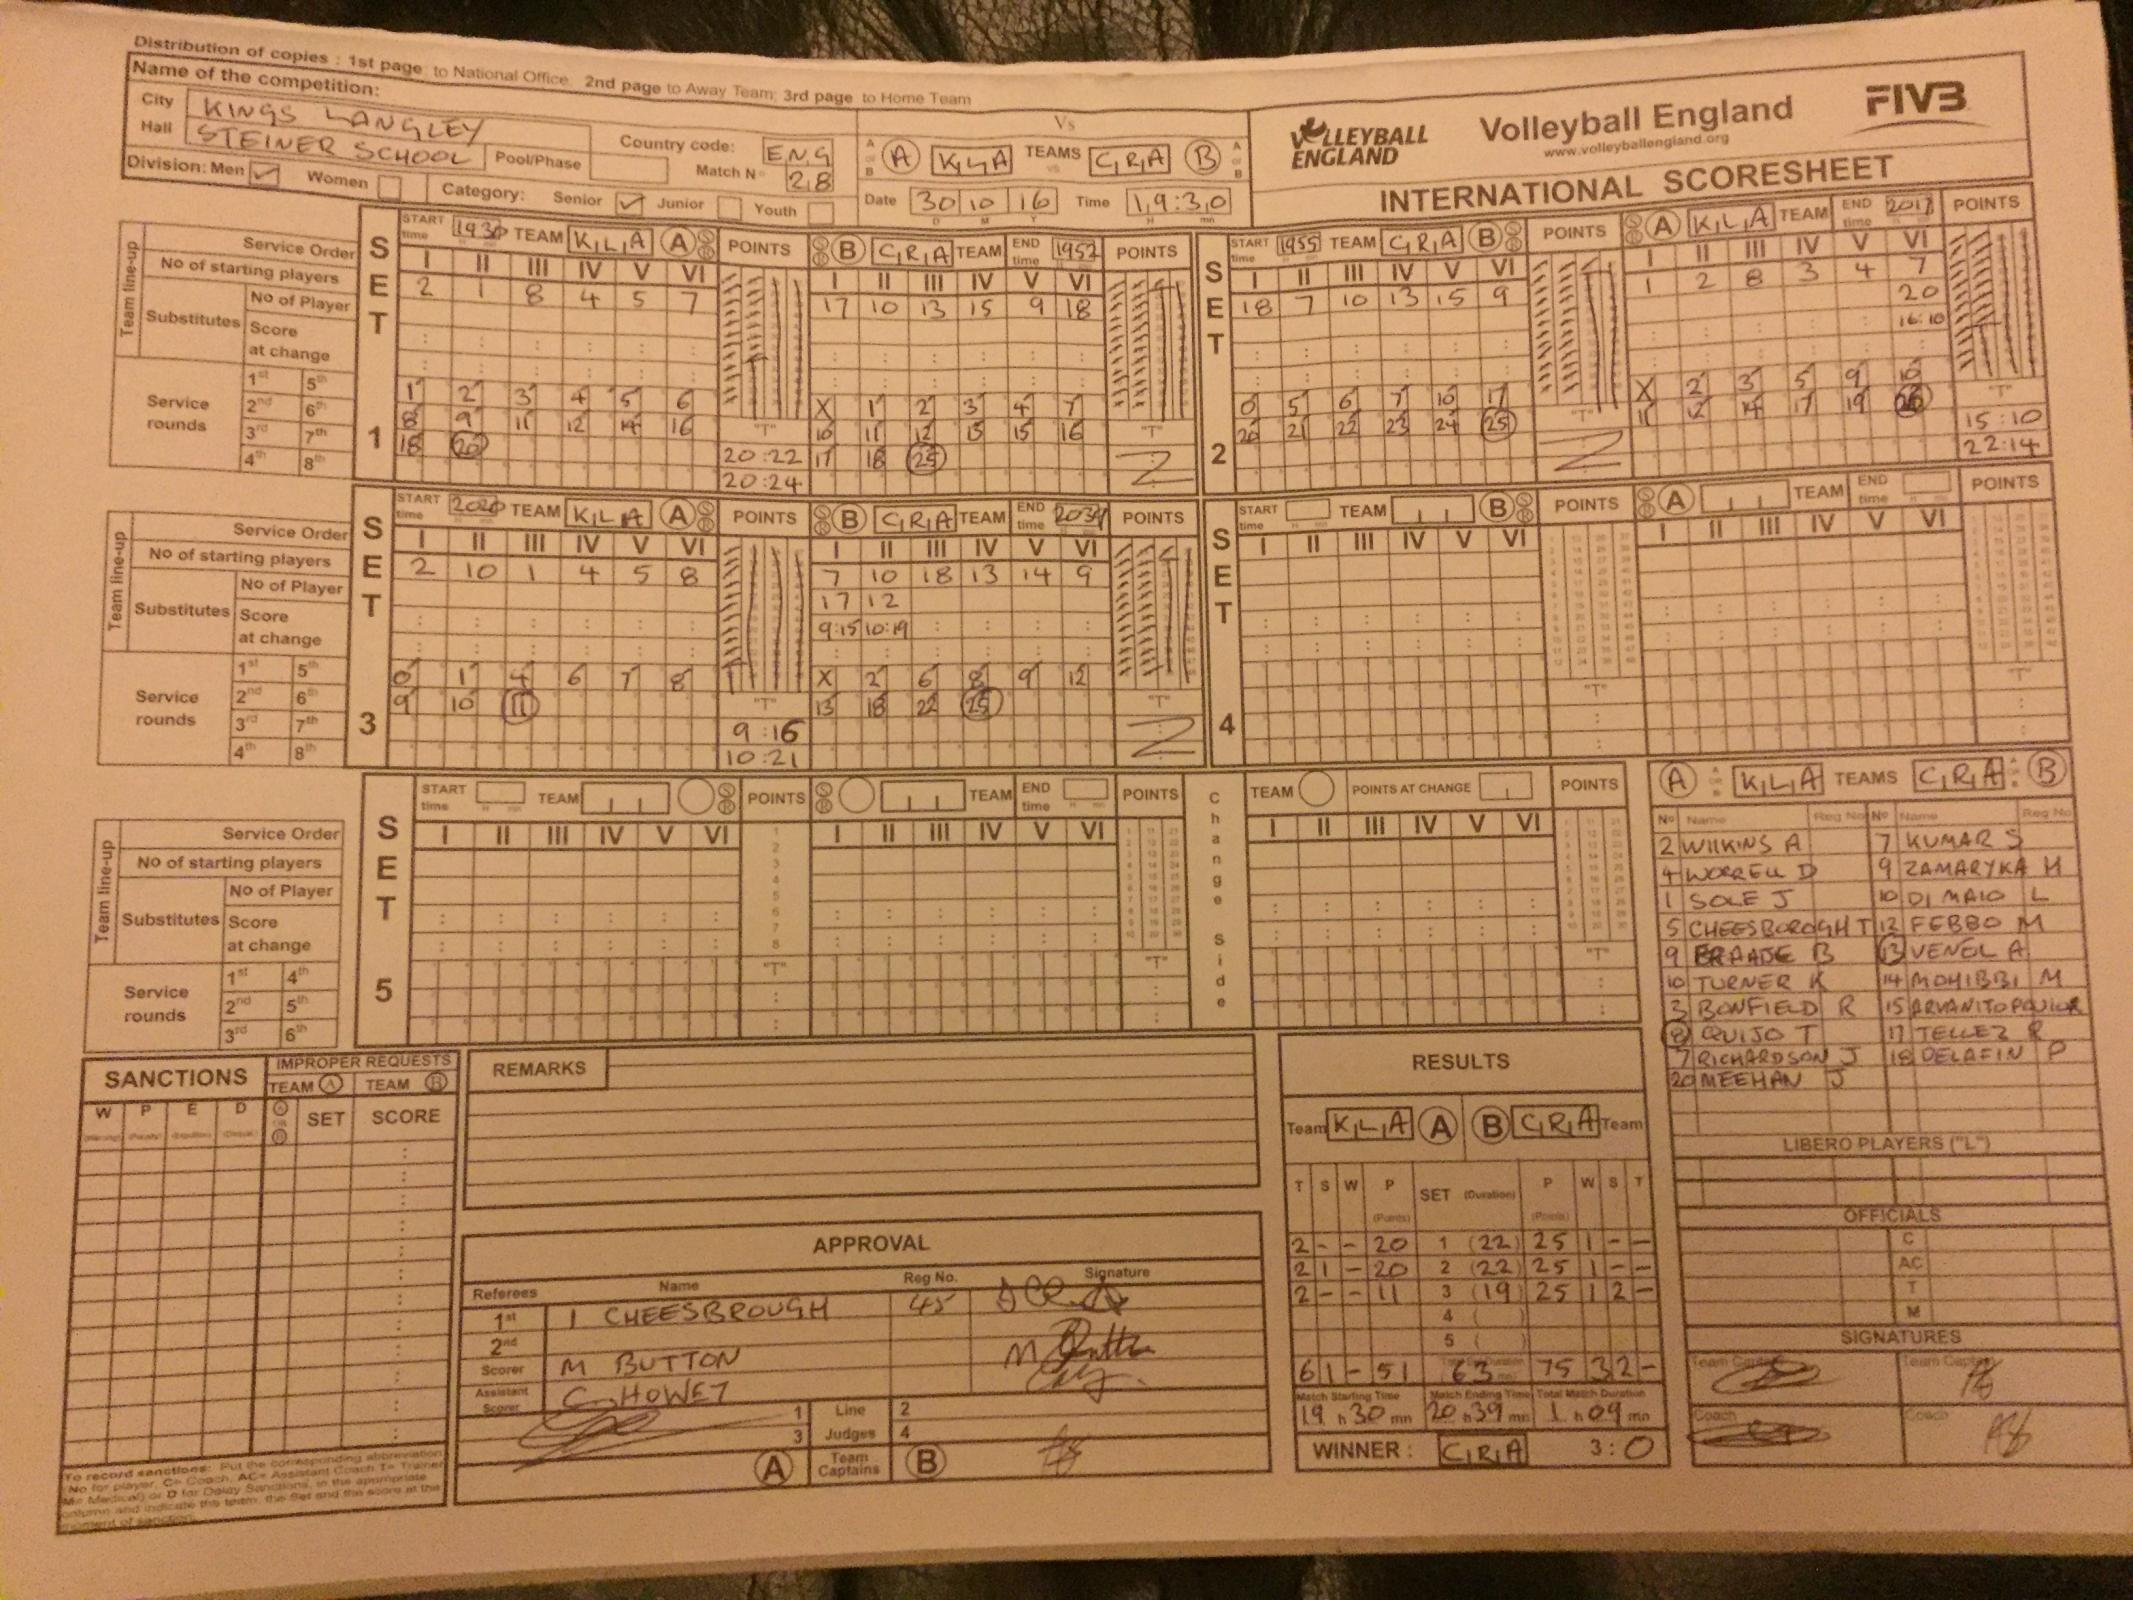 Distribution of copies : 1st page to National Office 2nd page to Away Team; 3rd page to Home Team
Name of the competition:
City KINGS LANGLEY
Hall STEINER SCHOOL
Pool/Phase
Country code: ENG
Match Nº 28
Division: Men ✓ Women
Category: Senior ✓ Junior Youth
Vs
A KLA TEAMS CRA B
Date 30 10 16 Time 19:30
VOLLEYBALL ENGLAND
Volleyball England
www.volleyballengland.org
FIVB
INTERNATIONAL SCORESHEET
Team line-up
Service Order
No of starting players
Substitutes
No of Player
Score at change
Service rounds
1st 5th
2nd 6th
3rd 7th
4th 8th
SET 1
START time 1930 TEAM KLA A POINTS
I II III IV V VI
2 1 8 4 5 7
1 2 3 4 5 6
8 9 11 12 14 16
18 20
"T"
20:22
20:24
B CRA TEAM END time 1952 POINTS
I II III IV V VI
17 10 13 15 9 18
X 1 2 3 4 7
10 11 12 13 15 16
17 18 25
"T"
SET 2
START time 1955 TEAM CRA B POINTS
I II III IV V VI
18 7 10 13 15 9
0 5 6 7 10 17
20 21 22 23 24 25
"T"
A KLA TEAM END time 2017 POINTS
I II III IV V VI
1 2 8 3 4 7
20
16:10
X 2 3 5 9 10
11 12 14 17 19 20
"T"
15:10
22:14
Team line-up
Service Order
No of starting players
Substitutes
No of Player
Score at change
Service rounds
1st 5th
2nd 6th
3rd 7th
4th 8th
SET 3
START time 2020 TEAM KLA A POINTS
I II III IV V VI
2 10 1 4 5 8
0 1 4 6 7 8
9 10 11
"T"
9:16
10:21
B CRA TEAM END time 2039 POINTS
I II III IV V VI
7 10 18 13 14 9
17 12
9:15 10:19
X 2 6 8 9 12
13 18 22 25
"T"
SET 4
START time TEAM B POINTS
I II III IV V VI
"T"
A TEAM END time POINTS
I II III IV V VI
"T"
Team line-up
Service Order
No of starting players
Substitutes
No of Player
Score at change
Service rounds
1st 4th
2nd 5th
3rd 6th
SET 5
START time TEAM POINTS
I II III IV V VI
"T"
TEAM END time POINTS
I II III IV V VI
"T"
Change Side
TEAM POINTS AT CHANGE POINTS
I II III IV V VI
"T"
A KLA TEAMS CRA B
Nº Name Reg No Nº Name Reg No
2 WILKINS A 7 KUMAR S
4 WORRELL D 9 ZAMARYKA H
1 SOLE J 10 DI MAIO L
5 CHEESBOROGH T 12 FEBBO M
9 BRAADE B 13 VENOL A
10 TURNER K 14 MOHIBBI M
3 BONFIELD R 15
8 QUIJO T 17 TELLEZ R
7 RICHARDSON J 18 DELAFIN P
20 MEEHAN J
LIBERO PLAYERS ("L")
OFFICIALS
C
AC
T
M
SIGNATURES
Team Captain Team Captain
Coach Coach
SANCTIONS
IMPROPER REQUESTS
TEAM A TEAM B
W P E D
SET SCORE
To record sanctions: Put the corresponding abbreviation
(No for player, C= Coach, AC= Assistant Coach T= Trainer
M= Medical) or D for Delay Sanctions, in the appropriate
column and indicate the team, the Set and the score at the
moment of sanction.
REMARKS
APPROVAL
Referees Name Reg No. Signature
1st I CHEESBROUGH 45
2nd
Scorer M BUTTON
Assistant Scorer C HOWET
1 Line 2
3 Judges 4
A Team Captains B
RESULTS
Team KLA A B CRA Team
T S W P (Points) SET (Duration) P (Points) W S T
2 - - 20 1 (22) 25 1 - -
2 1 - 20 2 (22) 25 1 - -
2 - - 11 3 (19) 25 1 2 -
4 ( )
5 ( )
6 1 - 51 63 75 3 2 -
Match Starting Time Match Ending Time Total Match Duration
19 h 30 mn 20 h 39 mn 1 h 09 mn
WINNER: CRA 3:0